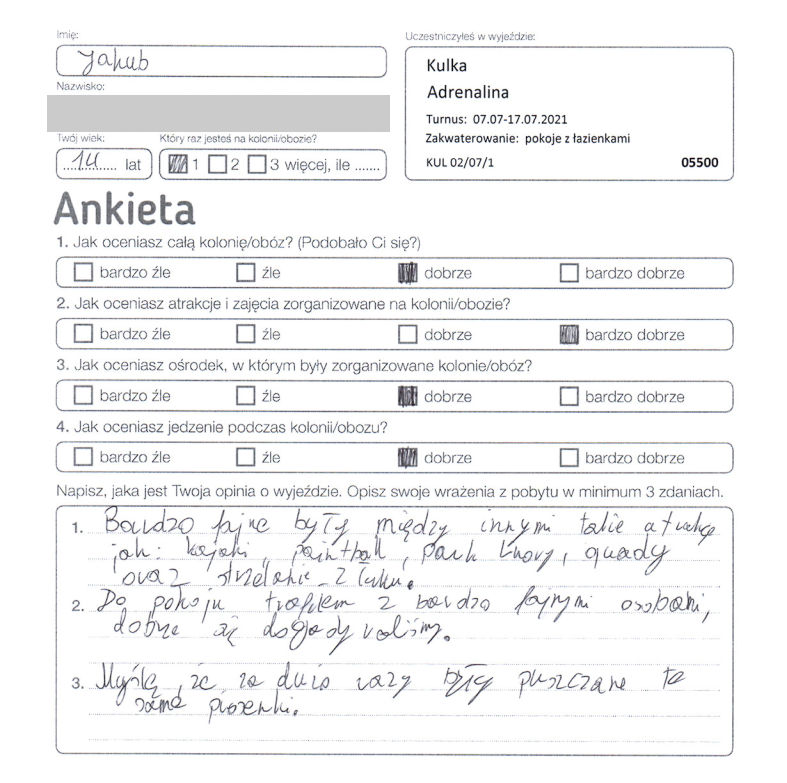 Imię:
Jakub
Nazwisko:
Twój wiek:
14 lat
Który raz jesteś na kolonii/obozie?
1 2 3 więcej, ile .......
Uczestniczyłeś w wyjeździe:
Kulka
Adrenalina
Turnus: 07.07-17.07.2021
Zakwaterowanie: pokoje z łazienkami
KUL 02/07/1 05500
Ankieta
1. Jak oceniasz całą kolonię/obóz? (Podobało Ci się?)
bardzo źle źle dobrze bardzo dobrze
2. Jak oceniasz atrakcje i zajęcia zorganizowane na kolonii/obozie?
bardzo źle źle dobrze bardzo dobrze
3. Jak oceniasz ośrodek, w którym były zorganizowane kolonie/obóz?
bardzo źle źle dobrze bardzo dobrze
4. Jak oceniasz jedzenie podczas kolonii/obozu?
bardzo źle źle dobrze bardzo dobrze
Napisz, jaka jest Twoja opinia o wyjeździe. Opisz swoje wrażenia z pobytu w minimum 3 zdaniach.
1. Bardzo fajne były między innymi takie atrakcje
jak: kajaki, paintball, park linowy, quady
oraz strzelanie z łuku.
2. Do pokoju trafiłem z bardzo fajnymi osobami,
dobrze się dogadywaliśmy.
3. Myślę, że za dużo razy były puszczane te
same piosenki.